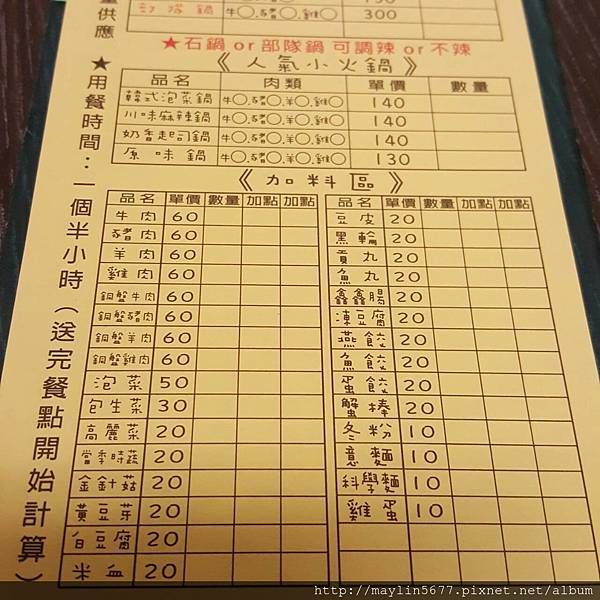 量供應
部隊鍋 牛○.豬○.雞○ 300
★石鍋 or 部隊鍋 可調辣 or 不辣
《人氣小火鍋》
品名 肉類 單價 數量
韓式泡菜鍋 牛○.豬○.羊○.雞○ 140
川味麻辣鍋 牛○.豬○.羊○.雞○ 140
奶香起司鍋 牛○.豬○.羊○.雞○ 140
原味鍋 牛○.豬○.羊○.雞○ 130
★用餐時間：一個半小時（送完餐點開始計算）
《加料區》
品名 單價 數量 加點 加點
牛肉 60
豬肉 60
羊肉 60
雞肉 60
銅盤牛肉 60
銅盤豬肉 60
銅盤羊肉 60
銅盤雞肉 60
泡菜 50
包生菜 30
高麗菜 20
當季時蔬 20
金針菇 20
黃豆芽 20
白豆腐 20
米血 20
品名 單價 數量 加點 加點
豆皮 20
黑輪 20
貢丸 20
魚丸 20
鑫鑫腸 20
凍豆腐 20
燕餃 20
魚餃 20
蛋餃 20
蟹棒 20
冬粉 10
意麵 10
科學麵 10
雞蛋 10
http://maylin5677.pixnet.net/album